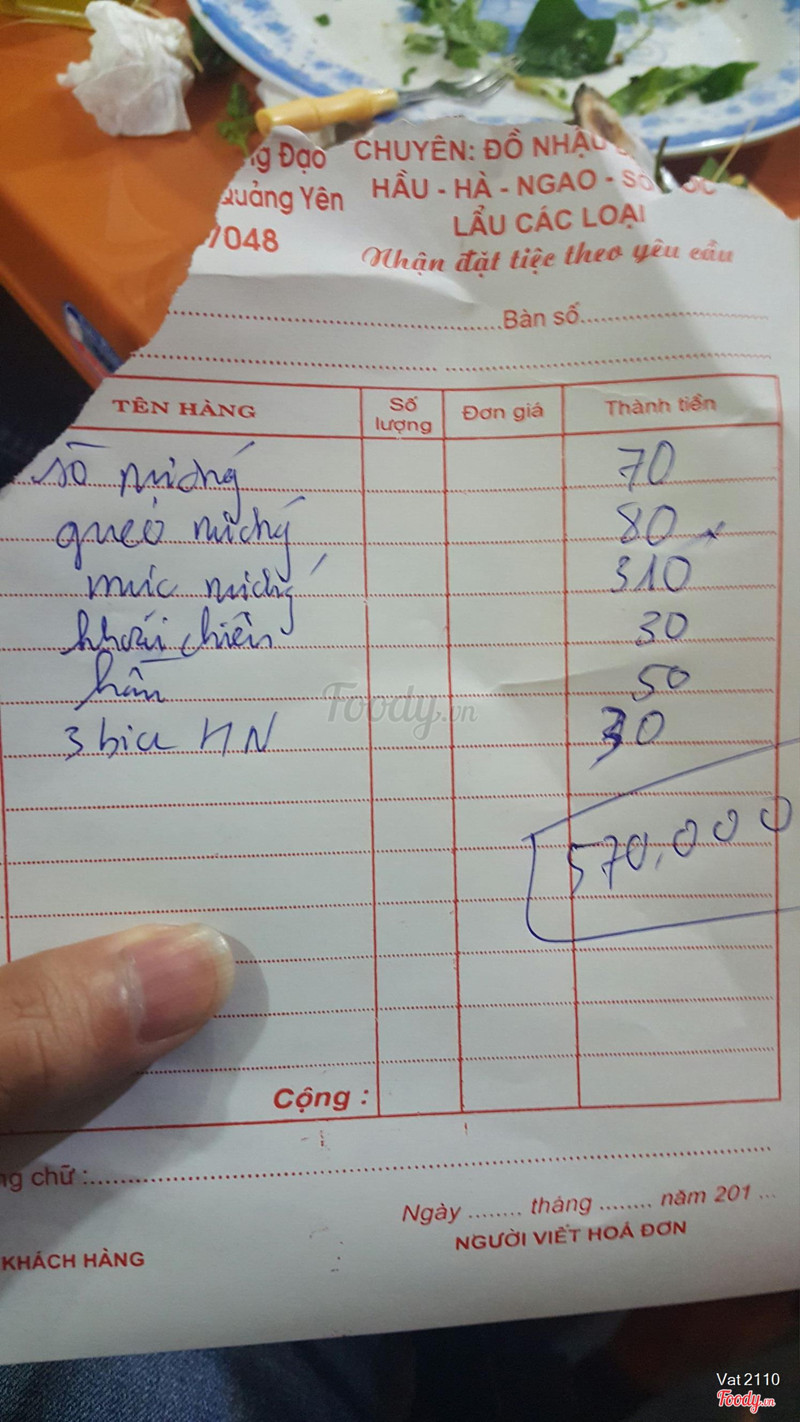 ng Đạo CHUYÊN: ĐỒ NHẬU
Quảng Yên HẦU - HÀ - NGAO - SÒ
7048 LẨU CÁC LOẠI
Nhận đặt tiệc theo yêu cầu
Bàn số
TÊN HÀNG Số lượng Đơn giá Thành tiền
sò 70
80
mực 310
khoai chiên 30
50
3 bia HN 30
Foody.vn
570,000
Cộng :
ng chữ :
Ngày ........ tháng ........ năm 201 ...
KHÁCH HÀNG NGƯỜI VIẾT HOÁ ĐƠN
Vat2110
Foody.vn